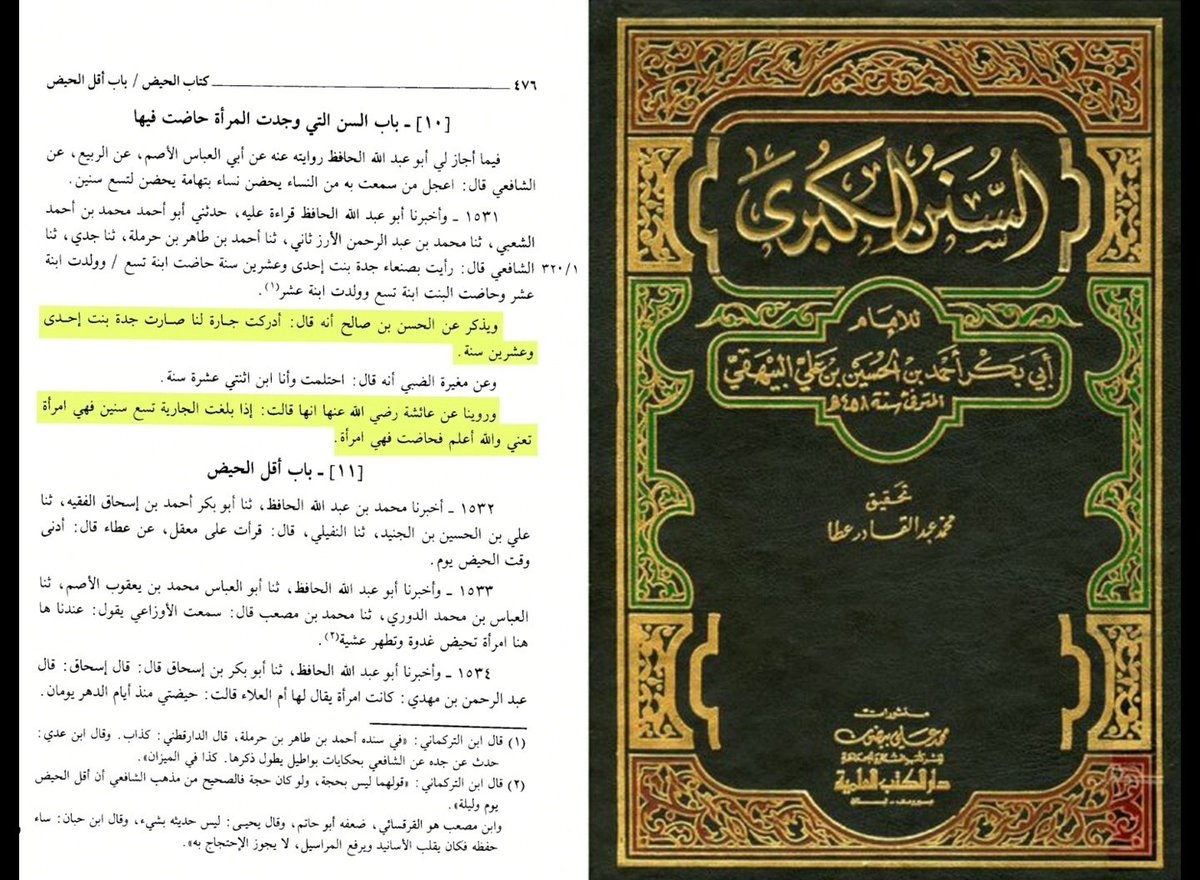 ٤٧٦ كتاب الحيض / باب أقل الحيض
[١٠] ـ باب السن التي وجدت المرأة حاضت فيها
فيما أجاز لي أبو عبد الله الحافظ روايته عنه عن أبي العباس الأصم، عن الربيع، عن
الشافعي قال: اعجل من سمعت به من النساء يحضن نساء بتهامة يحضن لتسع سنين.
١٥٣١ ـ وأخبرنا أبو عبد الله الحافظ قراءة عليه، حدثني أبو أحمد محمد بن أحمد
الشعبي، ثنا محمد بن عبد الرحمن الأرز ثاني، ثنا أحمد بن طاهر بن حرملة، ثنا جدي، ثنا
٣٢٠/١ الشافعي قال: رأيت بصنعاء جدة بنت إحدى وعشرين سنة حاضت ابنة تسع / وولدت ابنة
عشر وحاضت البنت ابنة تسع وولدت ابنة عشر(١).
ويذكر عن الحسن بن صالح أنه قال: أدركت جارة لنا صارت جدة بنت إحدى
وعشرين سنة.
وعن مغيرة الضبي أنه قال: احتلمت وأنا ابن اثنتي عشرة سنة.
وروينا عن عائشة رضي الله عنها انها قالت: إذا بلغت الجارية تسع سنين فهي امرأة
تعني والله أعلم فحاضت فهي امرأة.
[١١] ـ باب أقل الحيض
١٥٣٢ ـ أخبرنا محمد بن عبد الله الحافظ، ثنا أبو بكر أحمد بن إسحاق الفقيه، ثنا
علي بن الحسين بن الجنيد، ثنا النفيلي، قال: قرأت على معقل، عن عطاء قال: أدنى
وقت الحيض يوم.
١٥٣٣ ـ وأخبرنا أبو عبد الله الحافظ، ثنا أبو العباس محمد بن يعقوب الأصم، ثنا
العباس بن محمد الدوري، ثنا محمد بن مصعب قال: سمعت الأوزاعي يقول: عندنا ها
هنا امرأة تحيض غدوة وتطهر عشية(٢).
١٥٣٤ ـ وأخبرنا أبو عبد الله الحافظ، ثنا أبو بكر بن إسحاق قال: قال إسحاق: قال
عبد الرحمن بن مهدي: كانت امرأة يقال لها أم العلاء قالت: حيضتي منذ أيام الدهر يومان.
(١) قال ابن التركماني: «في سنده أحمد بن طاهر بن حرملة، قال الدارقطني: كذاب. وقال ابن عدي:
حدث عن جده عن الشافعي بحكايات بواطيل يطول ذكرها. كذا في الميزان».
(٢) قال ابن التركماني: «قولهما ليس بحجة، ولو كان حجة فالصحيح من مذهب الشافعي أن أقل الحيض
يوم وليلة».
وابن مصعب هو القرقسائي، ضعفه أبو حاتم، وقال يحيى: ليس حديثه بشيء، وقال ابن حبان: ساء
حفظه فكان يقلب الأسانيد ويرفع المراسيل، لا يجوز الإحتجاج به».
السنن الكبرى
للإمام
أبي بكر أحمد بن الحسين بن علي البيهقي
المتوفى سنة ٤٥٨ هـ
تحقيق
محمد عبد القادر عطا
منشورات
محمد علي بيضون
لنشر كتب السنة والجماعة
دار الكتب العلمية
بيروت - لبنان